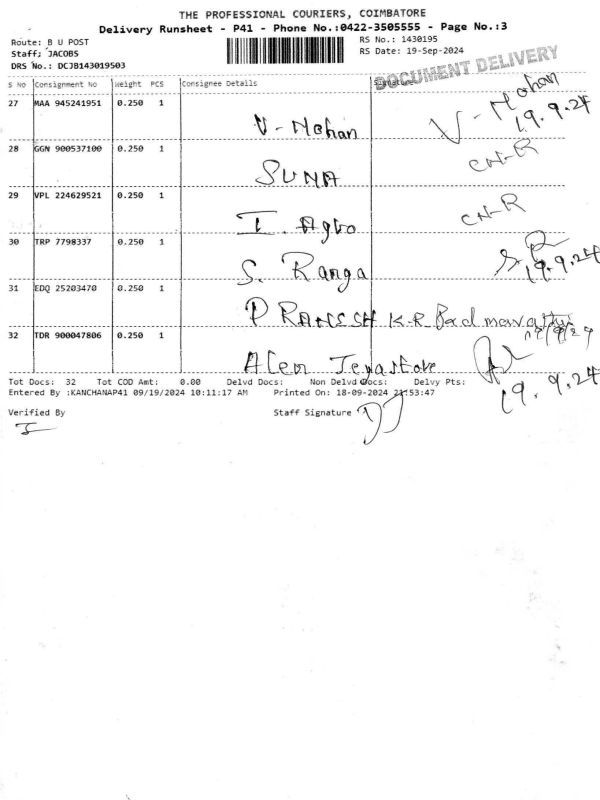 THE PROFESSIONAL COURIERS, COIMBATORE
Delivery Runsheet - P41 - Phone No.:0422-3505555 - Page No.:3
Route: B U POST
RS No.: 1430195
Staff: JACOBS
RS Date: 19-Sep-2024
DRS No.: DCJB143019503
DOCUMENT DELIVERY
S No Consignment No Weight PCS Consignee Details Signature
27 MAA 945241951 0.250 1 V-Mohan V-Mohan 19.9.24
28 GGN 900537100 0.250 1 SUNA CN-R
29 VPL 224629521 0.250 1 I. CN-R
30 TRP 7798337 0.250 1 S. Ranga 19.9.24
31 EDQ 25203470 0.250 1 PRANESH K.R
32 TDR 900047806 0.250 1 19.9.24
Tot Docs: 32 Tot COD Amt: 0.00 Delvd Docs: Non Delvd Docs: Delvy Pts:
Entered By :KANCHANAP41 09/19/2024 10:11:17 AM Printed On: 18-09-2024 21:53:47
Verified By Staff Signature